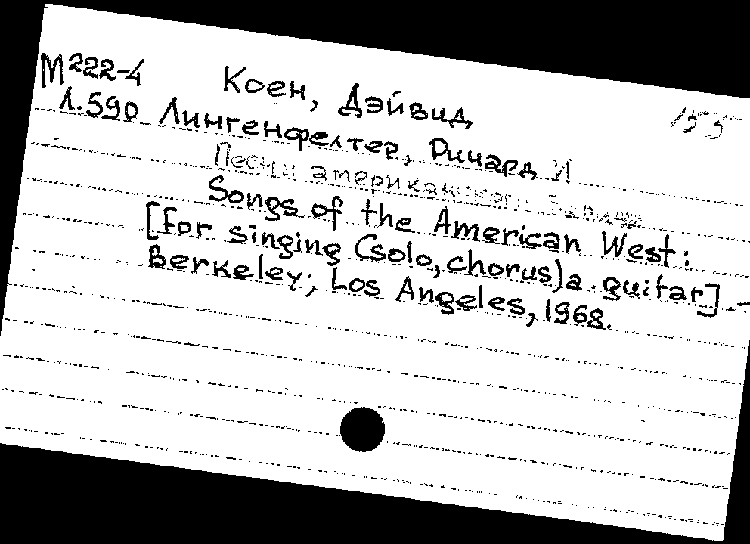 М222-4 Коен, Дэйвид,
Л.590 Лингенфелтер, Ричард И
155
Песни американского Запада
Songs of the American West:
[for singing (solo, chorus) a. guitar]. –
Berkeley; Los Angeles, 1968.